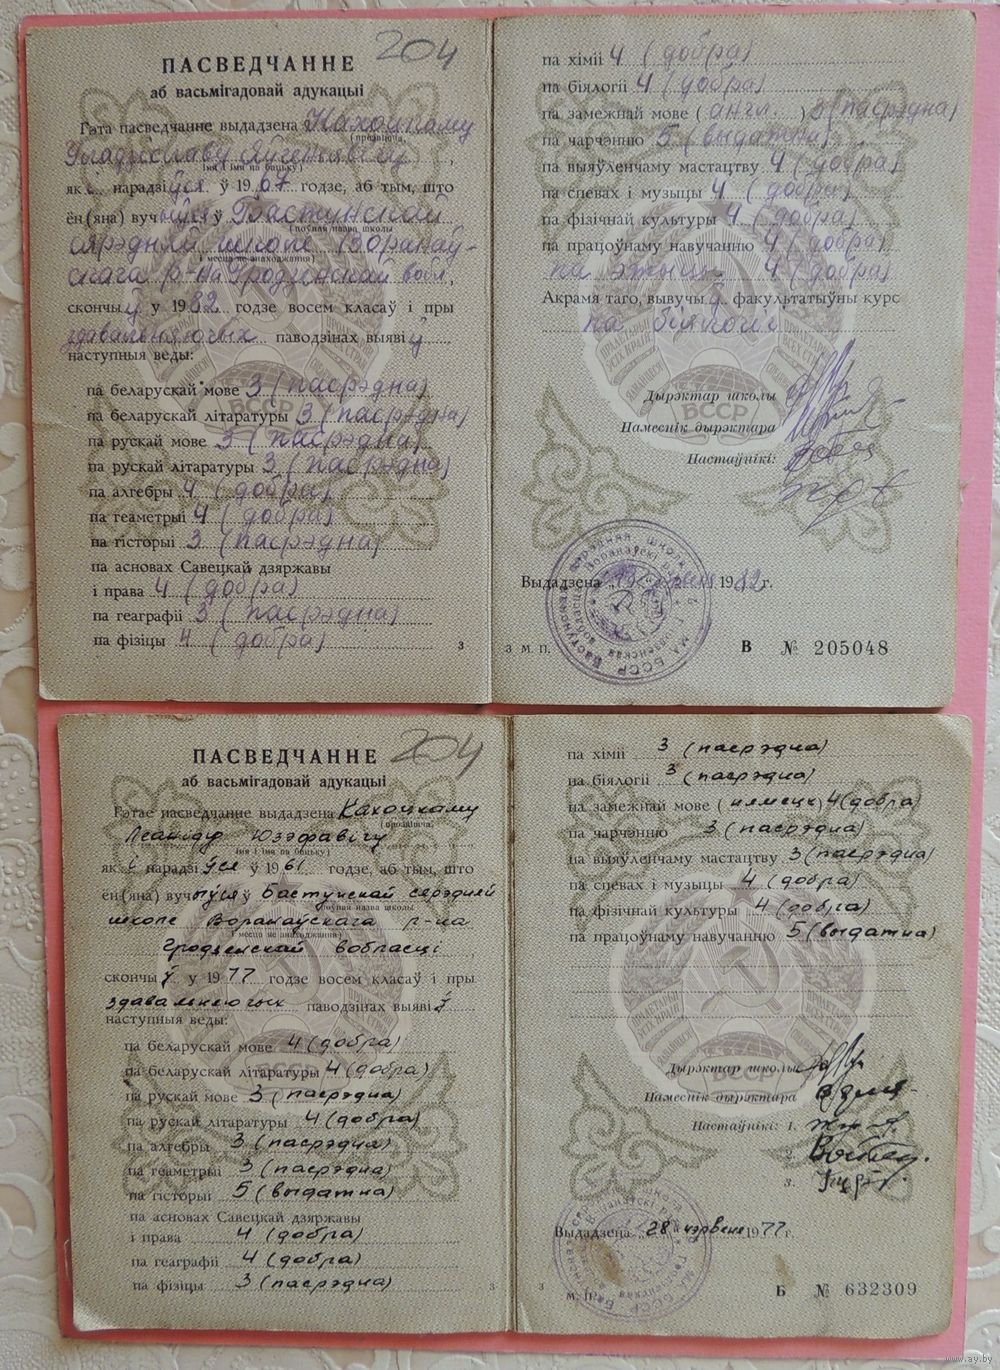 204
ПАСВЕДЧАННЕ
аб васьмігадовай адукацыі
Гэта пасведчанне выдадзена
(прозвішча,
Уладзіславу Яўгенавічу
імя і імя па бацьку)
як і нарадзіўся ў 1967 годзе, аб тым, што
ён(яна) вучыўся ў Бастунскай
(поўная назва школы
сярэдняй школе Воранаў-
і месца яе знаходжання)
скага р-на Гродзенскай вобл.
скончыў у 1982 годзе восем класаў і пры
здавальняючых паводзінах выявіў
наступныя веды:
па беларускай мове 3 (пасрэдна)
па беларускай літаратуры 3 (пасрэдна)
па рускай мове 3 (пасрэдна)
па рускай літаратуры 3 (пасрэдна)
па алгебры 4 (добра)
па геаметрыі 4 (добра)
па гісторыі 3 (пасрэдна)
па асновах Савецкай дзяржавы
і права 4 (добра)
па геаграфіі 3 (пасрэдна)
па фізіцы 4 (добра)
3
па хіміі 4 (добра)
па біялогіі 4 (добра)
па замежнай мове (англ.) 3 (пасрэдна)
па чарчэнню 5 (выдатна)
па выяўленчаму мастацтву 4 (добра)
па спевах і музыцы 4 (добра)
па фізічнай культуры 4 (добра)
па працоўнаму навучанню 4 (добра)
па этыцы 4 (добра)
Акрамя таго, вывучыў факультатыўны курс
па біялогіі
БССР
Дырэктар школы
Намеснік дырэктара
Настаўнікі:
Выдадзена 1982 г.
3 М. П.
В № 205048
204
ПАСВЕДЧАННЕ
аб васьмігадовай адукацыі
Гэтае пасведчанне выдадзена Кахоцкаму
(прозвішча,
Леаніду Юзэфавічу
імя і імя па бацьку)
як і нарадзіўся ў 1961 годзе, аб тым, што
ён(яна) вучыўся ў Бастунскай сярэдняй
(поўная назва школы
школе Воранаўскага р-на
і месца яе знаходжання)
Гродзенскай вобласці
скончыў у 1977 годзе восем класаў і пры
здавальняючых паводзінах выявіў
наступныя веды:
па беларускай мове 4 (добра)
па беларускай літаратуры 4 (добра)
па рускай мове 3 (пасрэдна)
па рускай літаратуры 4 (добра)
па алгебры 3 (пасрэдна)
па геаметрыі 3 (пасрэдна)
па гісторыі 5 (выдатна)
па асновах Савецкай дзяржавы
і права 4 (добра)
па геаграфіі 4 (добра)
па фізіцы 3 (пасрэдна)
3
па хіміі 3 (пасрэдна)
па біялогіі 3 (пасрэдна)
па замежнай мове (нямецк) 4 (добра)
па чарчэнню 3 (пасрэдна)
па выяўленчаму мастацтву 3 (пасрэдна)
па спевах і музыцы 4 (добра)
па фізічнай культуры 4 (добра)
па працоўнаму навучанню 5 (выдатна)
БССР
Дырэктар школы
Намеснік дырэктара
Настаўнікі: 1.
3.
Выдадзена „28 чэрвеня 1977 г.
3
М. П.
Б № 632309
www.ay.by